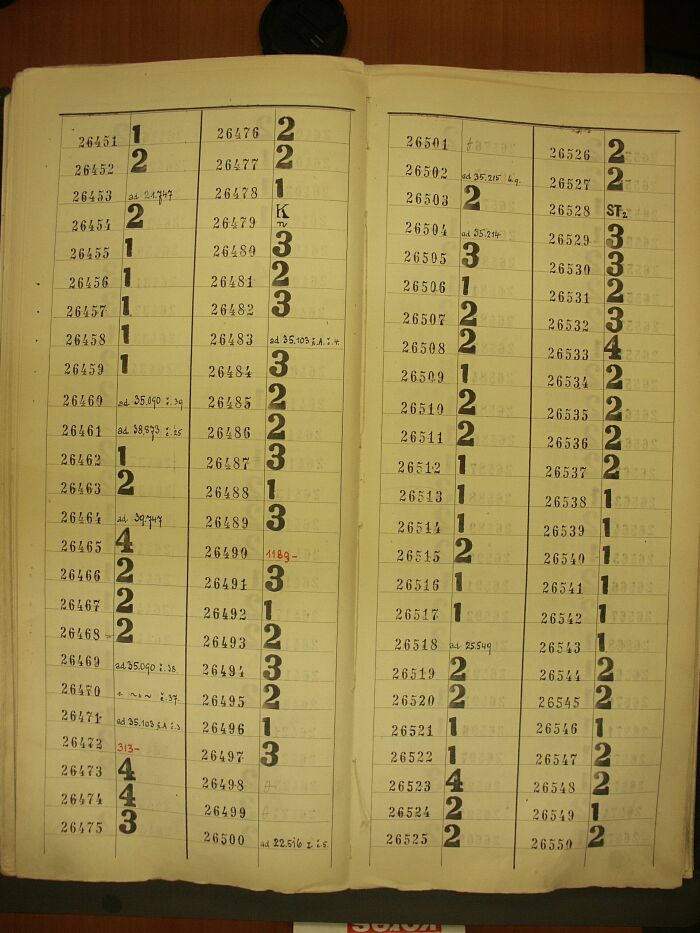 26451 1
26452 2
26453 ad 21.747
26454 2
26455 1
26456 1
26457 1
26458 1
26459 1
26460 ad 35.090 z. 39
26461 ad 38.873 z. 25
26462 1
26463 2
26464 ad 39.747
26465 4
26466 2
26467 2
26468 2
26469 ad 35.090 z. 38
26470 z. 37
26471 ad 35.103
26472 313-
26473 4
26474 4
26475 3
26476 2
26477 2
26478 1
26479 K
26480 3
26481 2
26482 3
26483 ad 35.103
26484 3
26485 2
26486 2
26487 3
26488 1
26489 3
26490 1189-
26491 3
26492 1
26493 2
26494 3
26495 2
26496 1
26497 3
26498
26499
26500 ad 22.516
26501
26502 ad 35.215
26503 2
26504 ad 35.214
26505 3
26506 1
26507 2
26508 2
26509 1
26510 2
26511 2
26512 1
26513 1
26514 1
26515 2
26516 1
26517 1
26518 ad 25.549
26519 2
26520 2
26521 1
26522 1
26523 4
26524 2
26525 2
26526 2
26527 2
26528 ST2
26529 3
26530 3
26531 2
26532 3
26533 4
26534 2
26535 2
26536 2
26537 2
26538 1
26539 1
26540 1
26541 1
26542 1
26543 1
26544 2
26545 2
26546 1
26547 2
26548 2
26549 1
26550 2